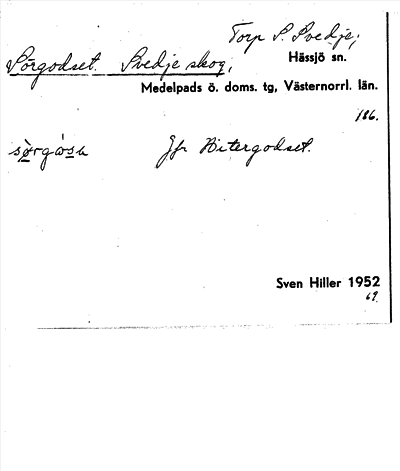 Torp S. Svedje;
Sörgodset. Svedje skog, Hässjö sn.
Medelpads ö. doms. tg, Västernorrl. län.
186.
Jfr Nitergodset.
Sven Hiller 1952
69.